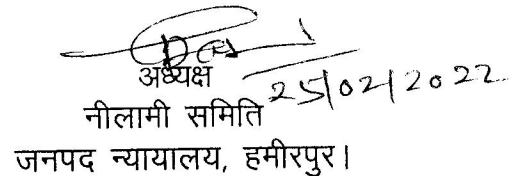 अध्यक्ष
25/02/2022
नीलामी समिति
जनपद न्यायालय, हमीरपुर।